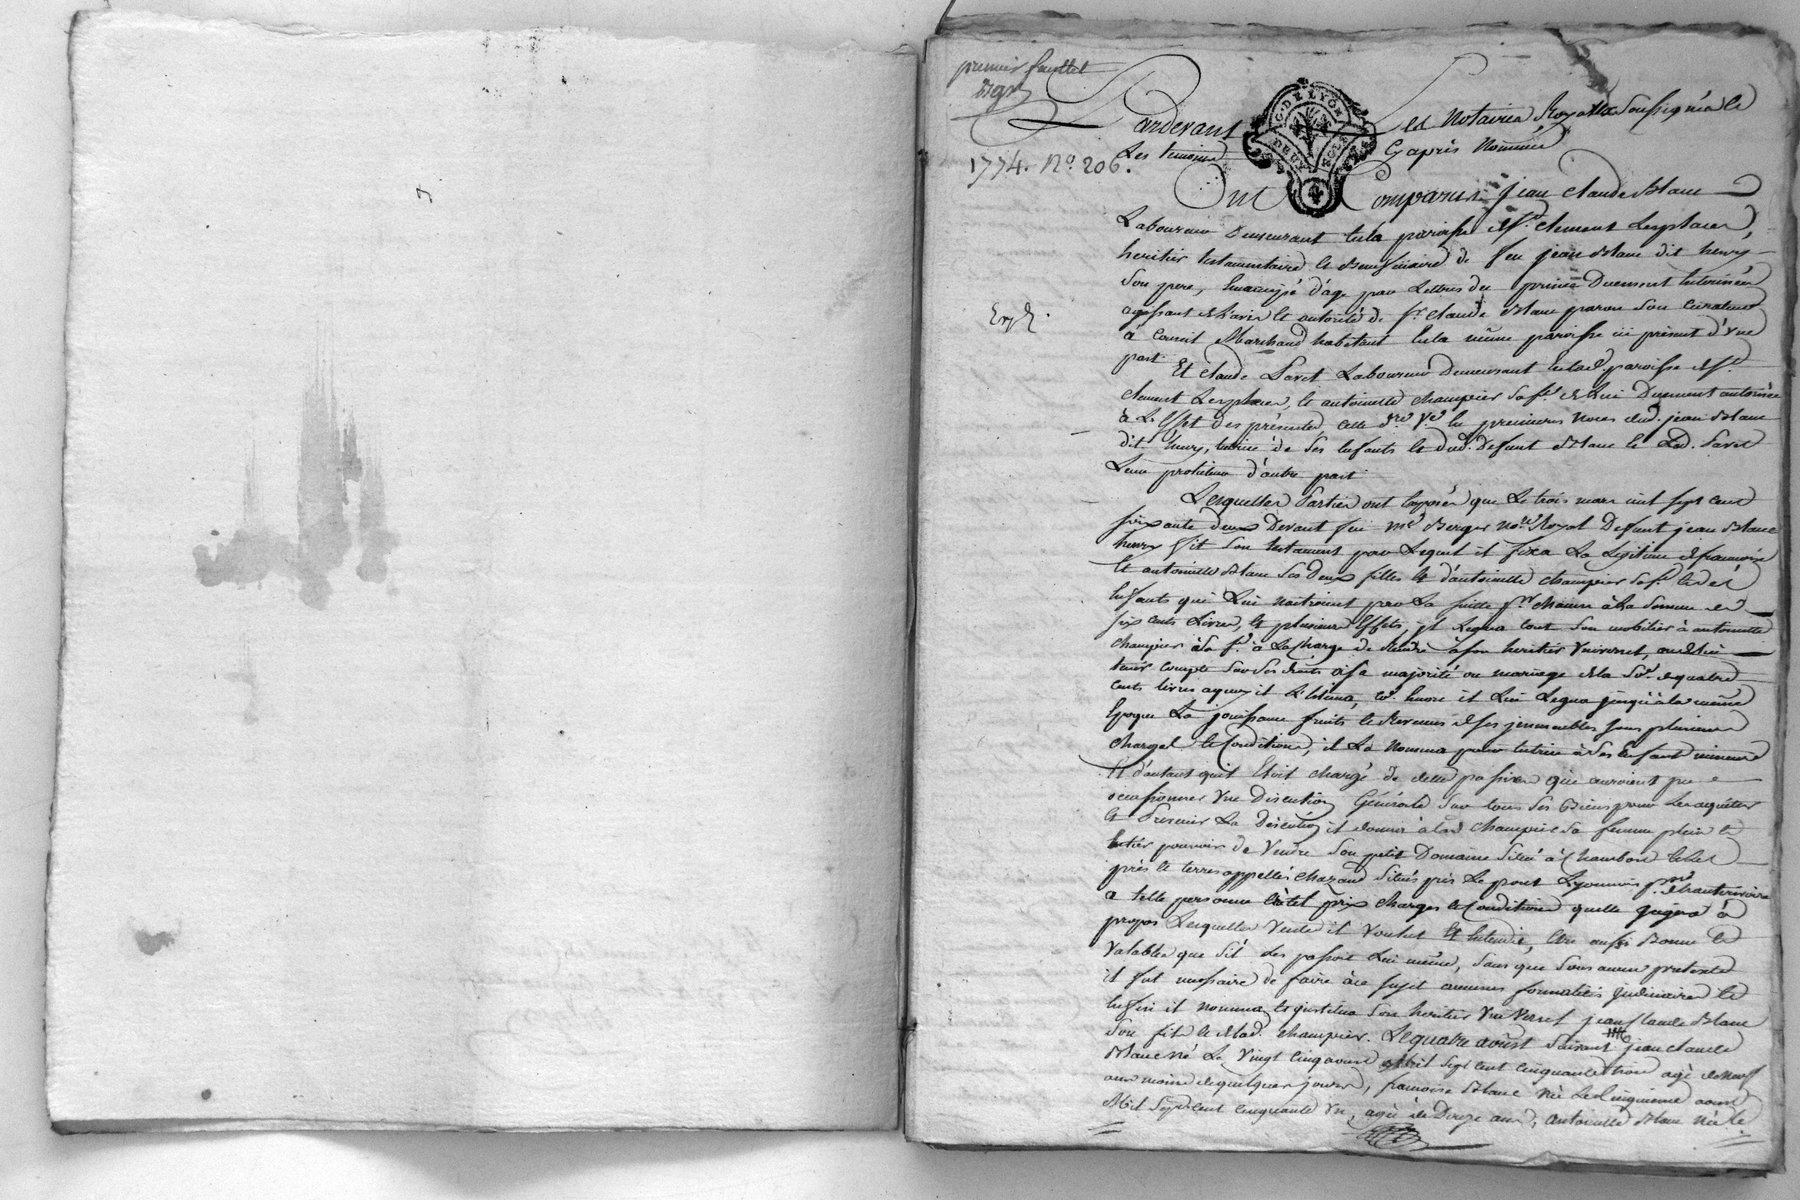 premier feuillet
1774. N.° 206.
G. DE LYON
DEUX SOLS
Pardevant les Notaires Royaux Soussignés et
Les temoins Cy après Nommés
Ont Comparu jean Claude Blanc
Laboureur Demeurant en la paroisse de S.t Clement Les places,
heritier testamentaire et Beneficiaire de feu jean Blanc dit henry
Son pere, Emancipé d'age par Lettres du prince Duement Enterinées
agissant de l'avis et autorité de S.r Claude Blanc paron Son Curateur
à Conseil Marchand habitant en la même paroisse ici présent d'une
part
Et Claude Laboureur Demeurant en lad. paroisse de S.t
Clement Les places, et antoinette Champier Sa f.e de Lui Duement autorisée
à L'Effet des présentes, cette d.re V.e en premieres Noces dud. jean Blanc
dit henry, tutrice de Ses Enfants et dud. Defunt Blanc et Led.
Leur protuteur d'autre part
Lesquelles Parties ont Exposé que Le trois mars mil sept cent
soixante deux Devant feu M.e Berger No.re Royal Defunt jean Blanc
henry fit Son testament par Lequel il fixa La Légitime de francoise
Et antoinette Blanc Ses Deux filles et d'antoinette Champier Sa f.e et des
Enfants qui Lui naitroient par La suitte p.r Chacun à La Somme de
six cents Livres, et plusieurs Effets, il Legua tout Son mobilier à antoinette
Champier à Sa f.e à La Charge de Rendre à Son heritier Universel, ou de lui
tenir Compte Sur Ses droits à Sa majorité ou mariage de la So.e de quatre
cents livres à quoy il L'Estima, Et. Encore il Lui Legua jusqu'à la même
Epoque La jouissance fruits et Revenus de Ses immeubles Sous plusieurs
charges et Conditions, il La Nomma pour tutrice à Ses Enfants mineurs
Et d'autant qu'il Etoit Chargé de dettes passives qui auroient pu
occasionner Une Discution Générale Sur tous Ses Biens pour Les acquitter
et Prevenir La Discution, il donna à lad. Champier Sa femme plein et
Entier pouvoir de Vendre Son petit Domaine Situé à Chambost Et Les
près et terres appellés Chazaud Situés près Le pont Lyonnois p.sse d'hauterivoire
a telle personne Et à tel prix Charges et Conditions quelle jugera à
propos Lesquelles Ventes il Voulut Et Entendit, être aussi Bonnes Et
Valables que S'il Les passoit Lui même, Sans que Sous aucun pretexte
il fut necessaire de faire à ce Sujet aucunes formalités judiciaires Et
Enfin il nomma Et institua Son heritier Universel jean Claude Blanc
Son fils et de lad. Champier. Le quatre aoust Suivant jean Claude
Blanc Né Le Vingt Cinq aoust Mil Sept Cent Cinquante trois agé de neuf
ans moins de quelques jours, francoise Blanc Née Le Cinquieme aoust
Mil Sept Cent Cinquante Un, agée de Douze ans, Antoinette Blanc Née Le